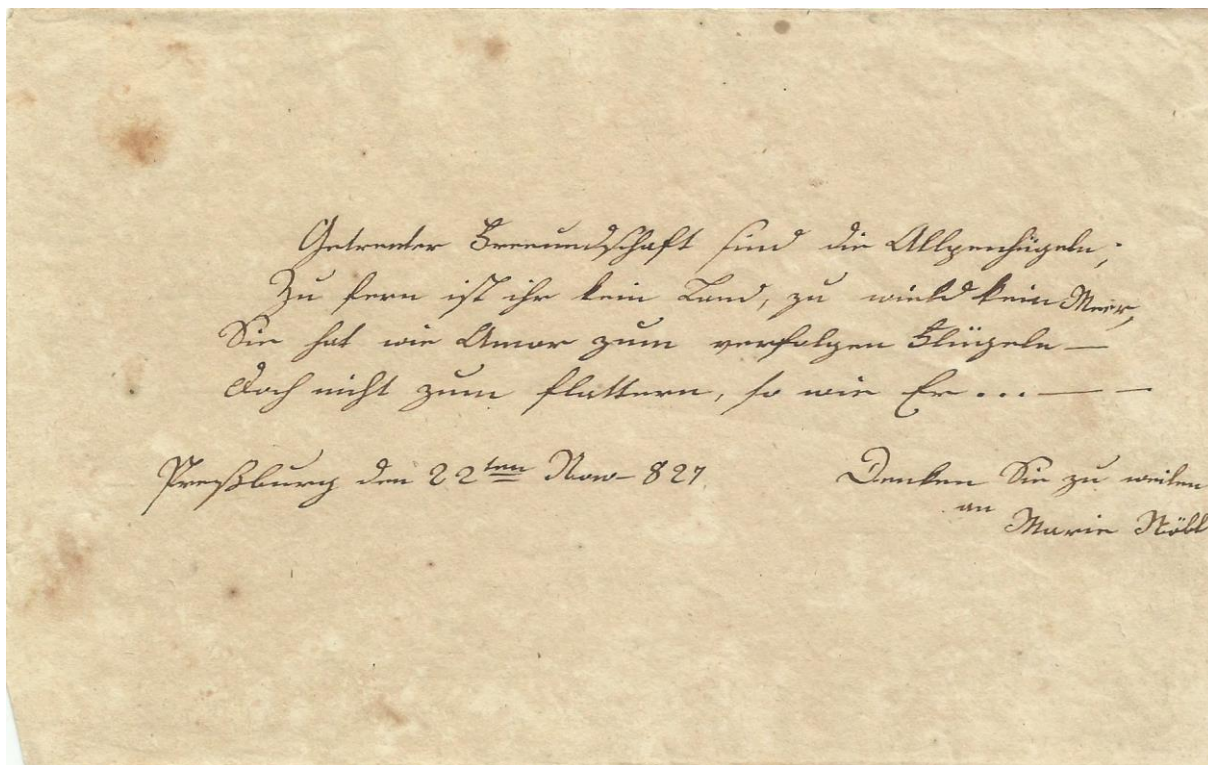 Getrenter Freeundschaft sind die Allpenhügeln;
Zu fern ist ihr kein Land, zu wield kein Meer,
Sie hat wie Amor zum verfolgen Flügeln —
Doch nicht zum flattern, so wie Er ... — —
Preßburg den 22ten Nov- 827.
Denken Sie zu weilen
an
Marie Nöbl